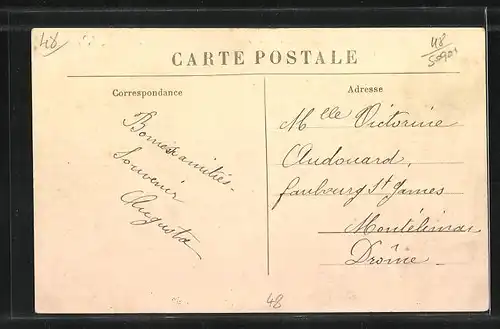 48
48
50901
CARTE POSTALE
Correspondance
Adresse
Bonnes amitiés.
Souvenir
Augusta
Mlle Victorine
Audouard,
faubourg St James
Montélimar
Drôme.
48